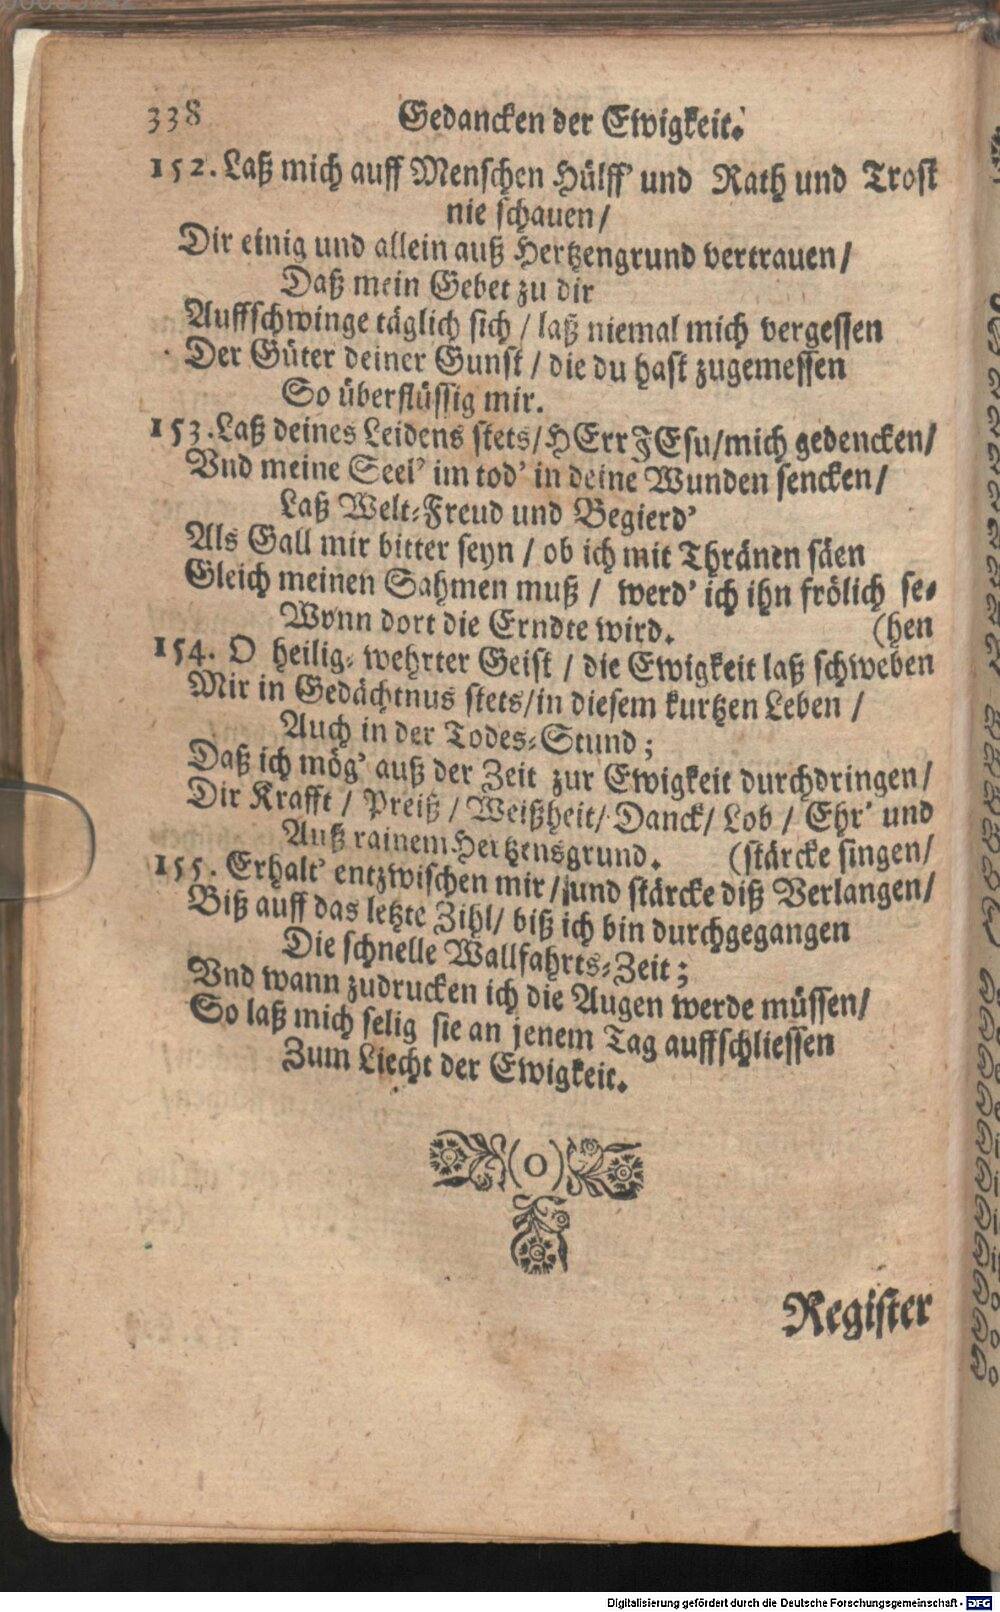 338 Gedancken der Ewigkeit.
152. Laß mich auff Menschen Hülff' und Rath und Trost
nie schauen/
Dir einig und allein auß Hertzengrund vertrauen/
Daß mein Gebet zu dir
Auffschwinge täglich sich / laß niemal mich vergessen
Der Güter deiner Gunst / die du hast zugemessen
So überflüssig mir.
153. Laß deines Leidens stets/HErr JEsu/mich gedencken/
Vnd meine Seel' im tod' in deine Wunden sencken/
Laß Welt-Freud und Begierd'
Als Gall mir bitter seyn / ob ich mit Thränen säen
Gleich meinen Sahmen muß / werd' ich ihn frölich se-
Wonn dort die Erndte wird. (hen
154. O heilig-wehrter Geist / die Ewigkeit laß schweben
Mir in Gedächtnus stets/in diesem kurtzen Leben /
Auch in der Todes-Stund;
Daß ich mög' auß der Zeit zur Ewigkeit durchdringen/
Dir Krafft / Preiß / Weißheit/ Danck/ Lob / Ehr' und
Auß rainem Hertzensgrund. (stärcke singen/
155. Erhalt' entzwischen mir / und stärcke diß Verlangen/
Biß auff das letzte Zihl/ biß ich bin durchgegangen
Die schnelle Wallfahrts-Zeit;
Vnd wann zudrucken ich die Augen werde müssen/
So laß mich selig sie an jenem Tag auffschliessen
Zum Liecht der Ewigkeit.
(o)
Register
Digitalisierung gefördert durch die Deutsche Forschungsgemeinschaft - DFG